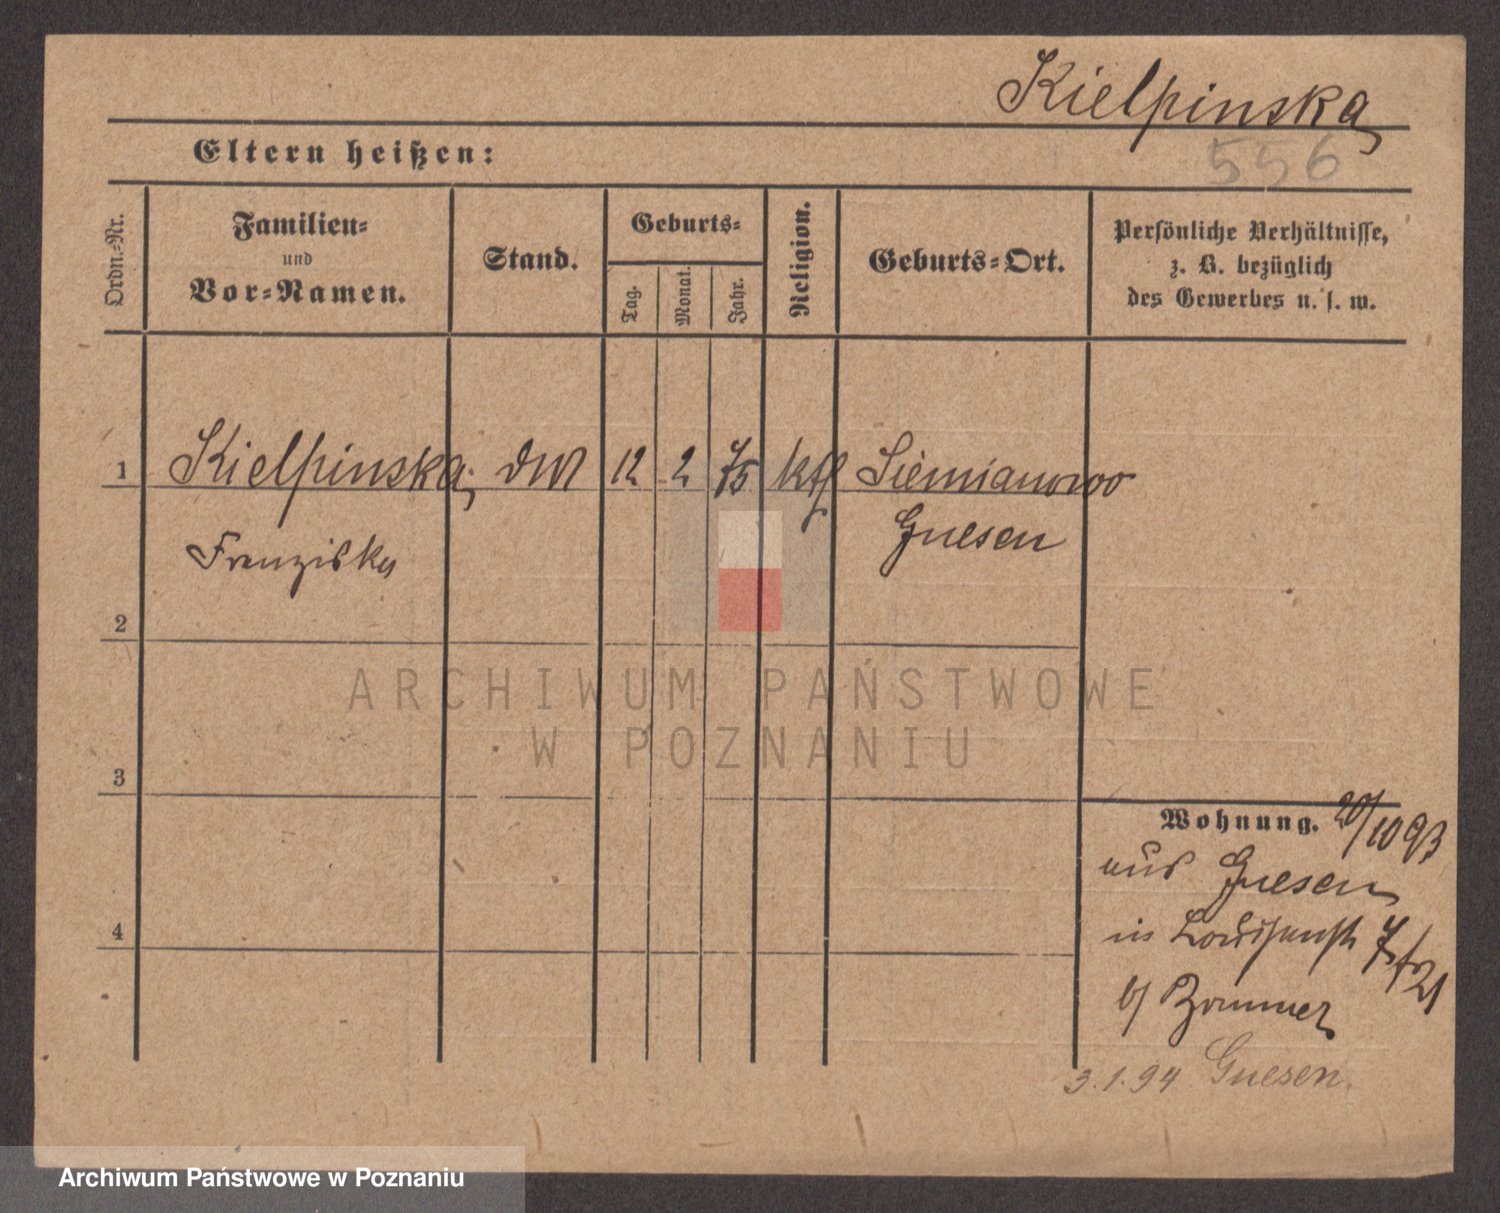 Kielpinska
556
Eltern heißen:
Ordn.-Nr.
Familien-
und
Vor-Namen.
Stand.
Geburts-
Tag.
Monat.
Jahr.
Religion.
Geburts-Ort.
Persönliche Verhältnisse,
z. B. bezüglich
des Gewerbes u. s. w.
1 Kielpinska, 12 2 75 ktf Siemianowo
Gnesen
Franziska
2
3
4
Wohnung. 20/10 93
aus Gnesen
in Louisenstr
b/
3.1.94 Gnesen.
ARCHIWUM PAŃSTWOWE
W POZNANIU
Archiwum Państwowe w Poznaniu